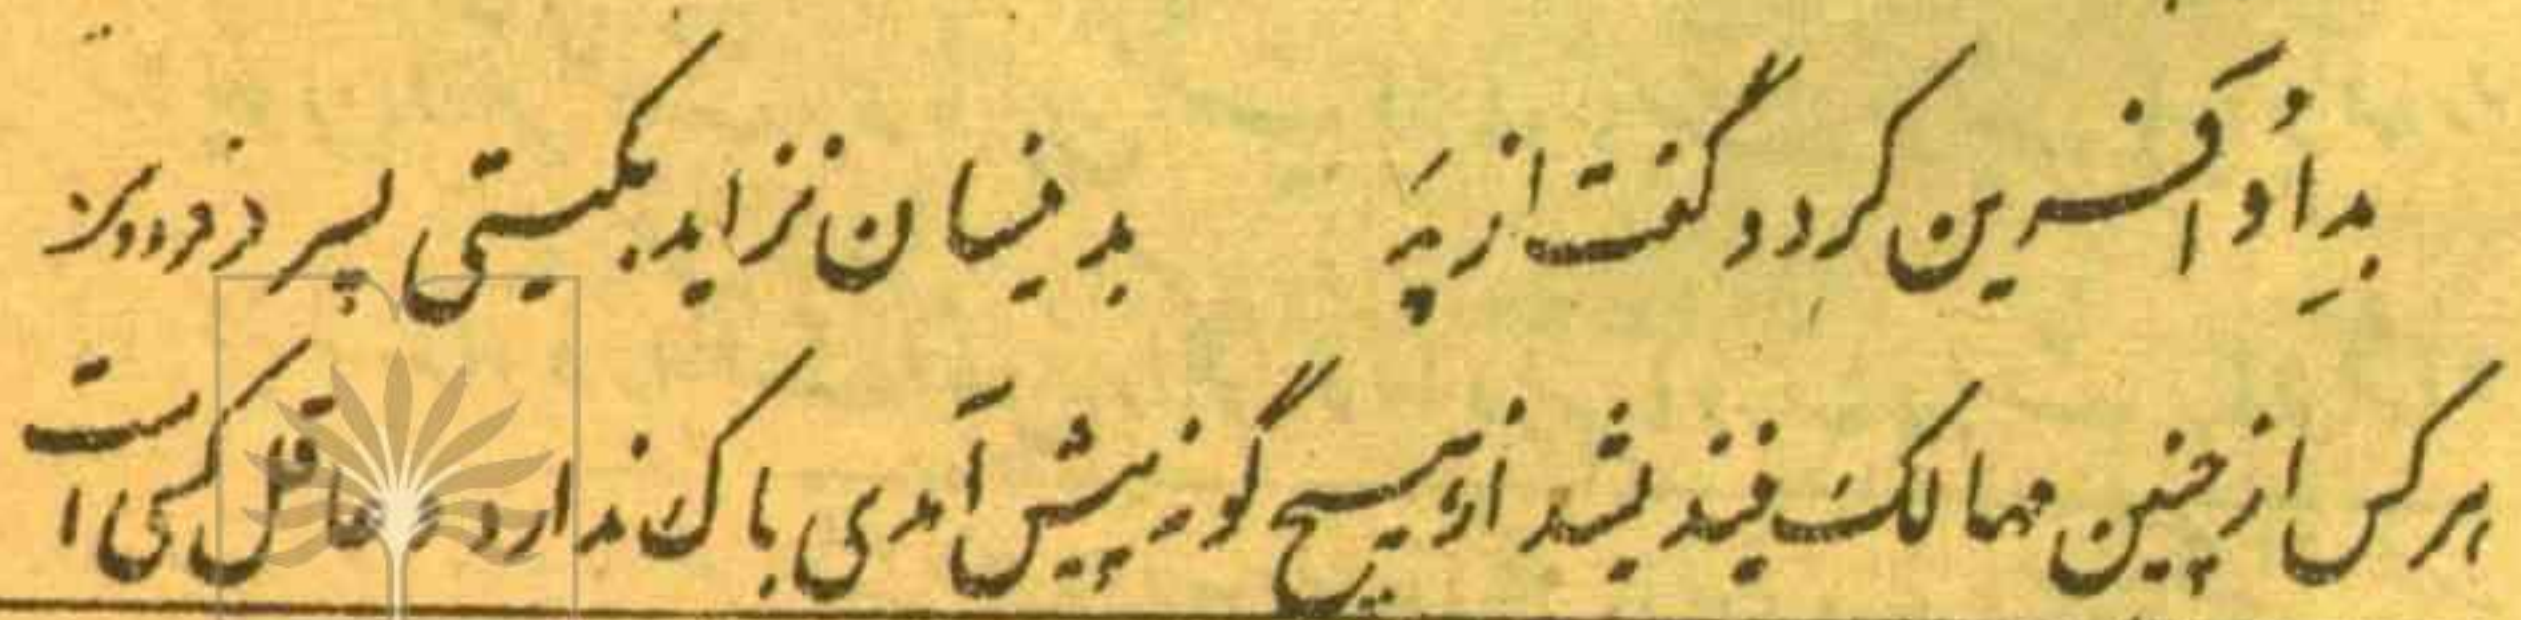 بدِ أو آفسرین کرد و گفت از پدَر بدینسان نزاید بگیتی پسر
هر کس از چنین مهالک نیندیشد از هیچ گونه پیش آمدی باک ندارد عاقل کسی است